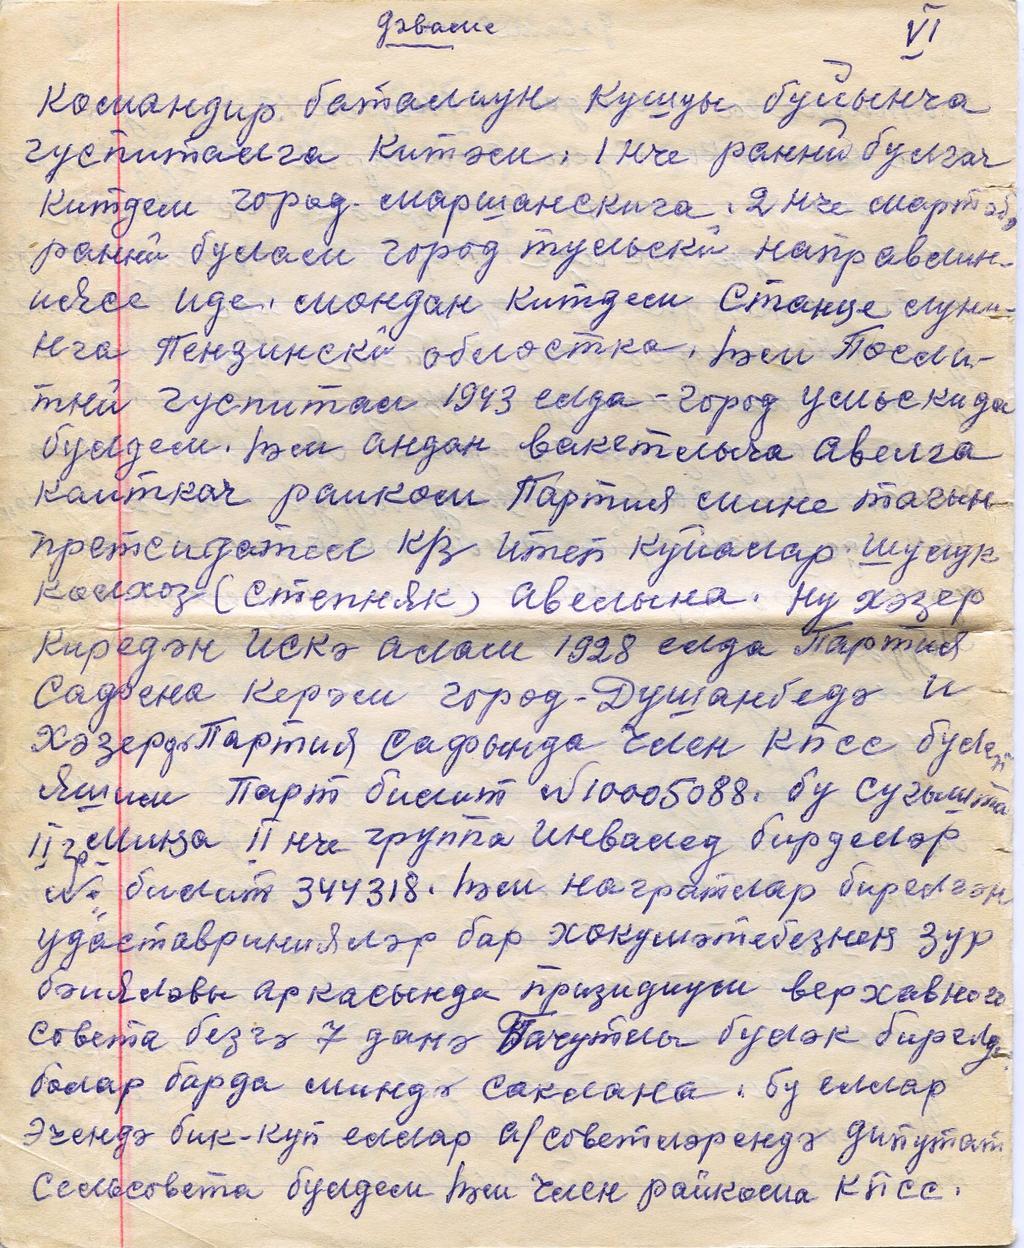 дэваме
VI
Командир баталиун кушуы буйынча
гуспиталга китэм. 1 нче ранний булгач
киттем город-маршанскига. 2 нче март
ранний булам город тульский направлин-
иясе иде. моннан киттем Станце луни-
нга Пензинский область­ка. һэм Посли-
тний гуспитал 1943 елда - город ульскида
булдем. һэм аннан вакетлыча авелга
кайткач райком Партия мине тагын
претсидател кІз итеп куйалар шулук
колхоз (степняк) авелына. Ну хэзер
киредэн искэ алам 1928 елда Партия
Сафына керэм город-Душанбедэ и
хэзердэ Партия Сафында член КПСС булеп
яшим Парт билит №10005088. бу сугышта
II гр Минга II нче группа инвалед бирделэр
№ билит 344318. һэм награтлар бирелгэн
удаставриниялэр бар хокумэтебезнен зур
бэиялэвы аркасында призидиум верхавного
совета безгэ 7 данэ Пачутлы булэк бирелде
болар барда миндэ саклана. бу еллар
эчендэ бик-куп еллар а/советлэрендэ дипутат
сельсовета булдем һэм член райкома КПСС.